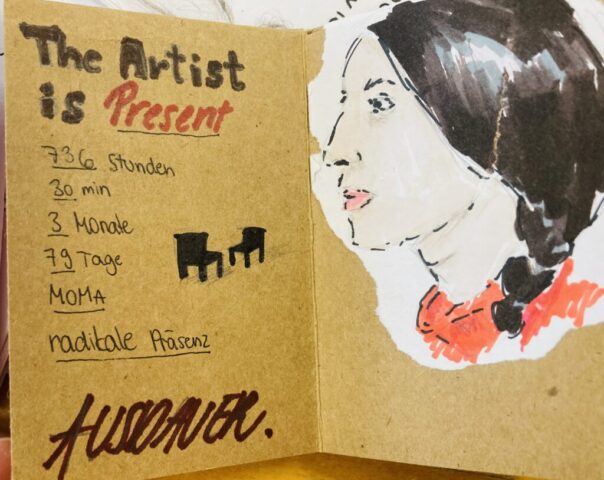 The Artist
is Present
736 Stunden
30 min
3 Monate
79 Tage
MOMA
radikale Präsenz
AUSDAUER.